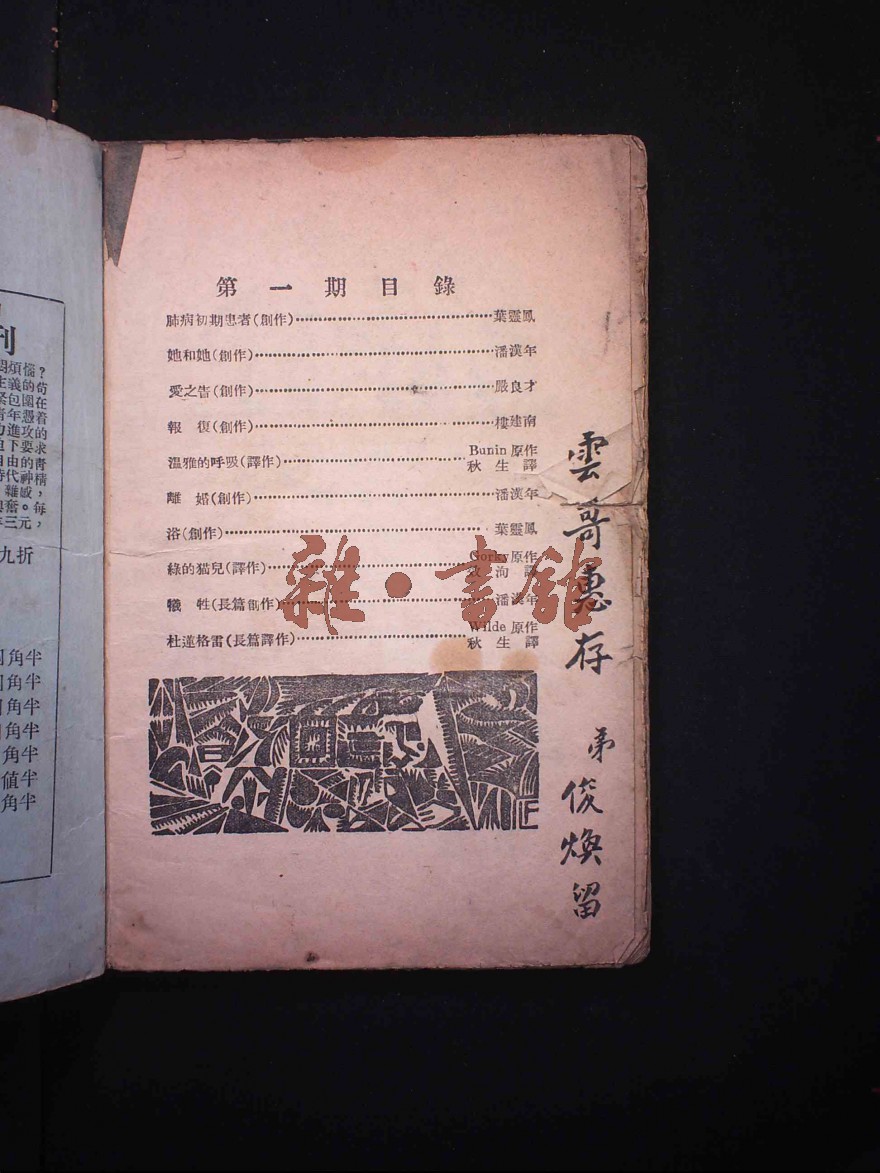 第一期目錄
肺病初期患者(創作)⋯⋯葉靈鳳
她和她(創作)⋯⋯潘漢年
愛之告(創作)⋯⋯嚴良才
報 復(創作)⋯⋯樓建南
溫雅的呼吸(譯作)⋯⋯Bunin 原作
秋生譯
離 婚(創作)⋯⋯潘漢年
浴(創作)⋯⋯葉靈鳳
綠的猫兒(譯作)⋯⋯Gorky 原作
洵 譯
犧 牲(長篇創作)⋯⋯潘漢年
杜蓮格雷(長篇譯作)⋯⋯Wilde 原作
秋生譯
雲哥惠存
弟俊煥留
雜·書館
LF
刊
煩惱?
主義的
包圍在
青年憑着
力進攻的
迫下要求
自由的青
時代神精
雜感,
興奮。每
三元,
九折
角半
角半
角半
角半
角半
值半
角半